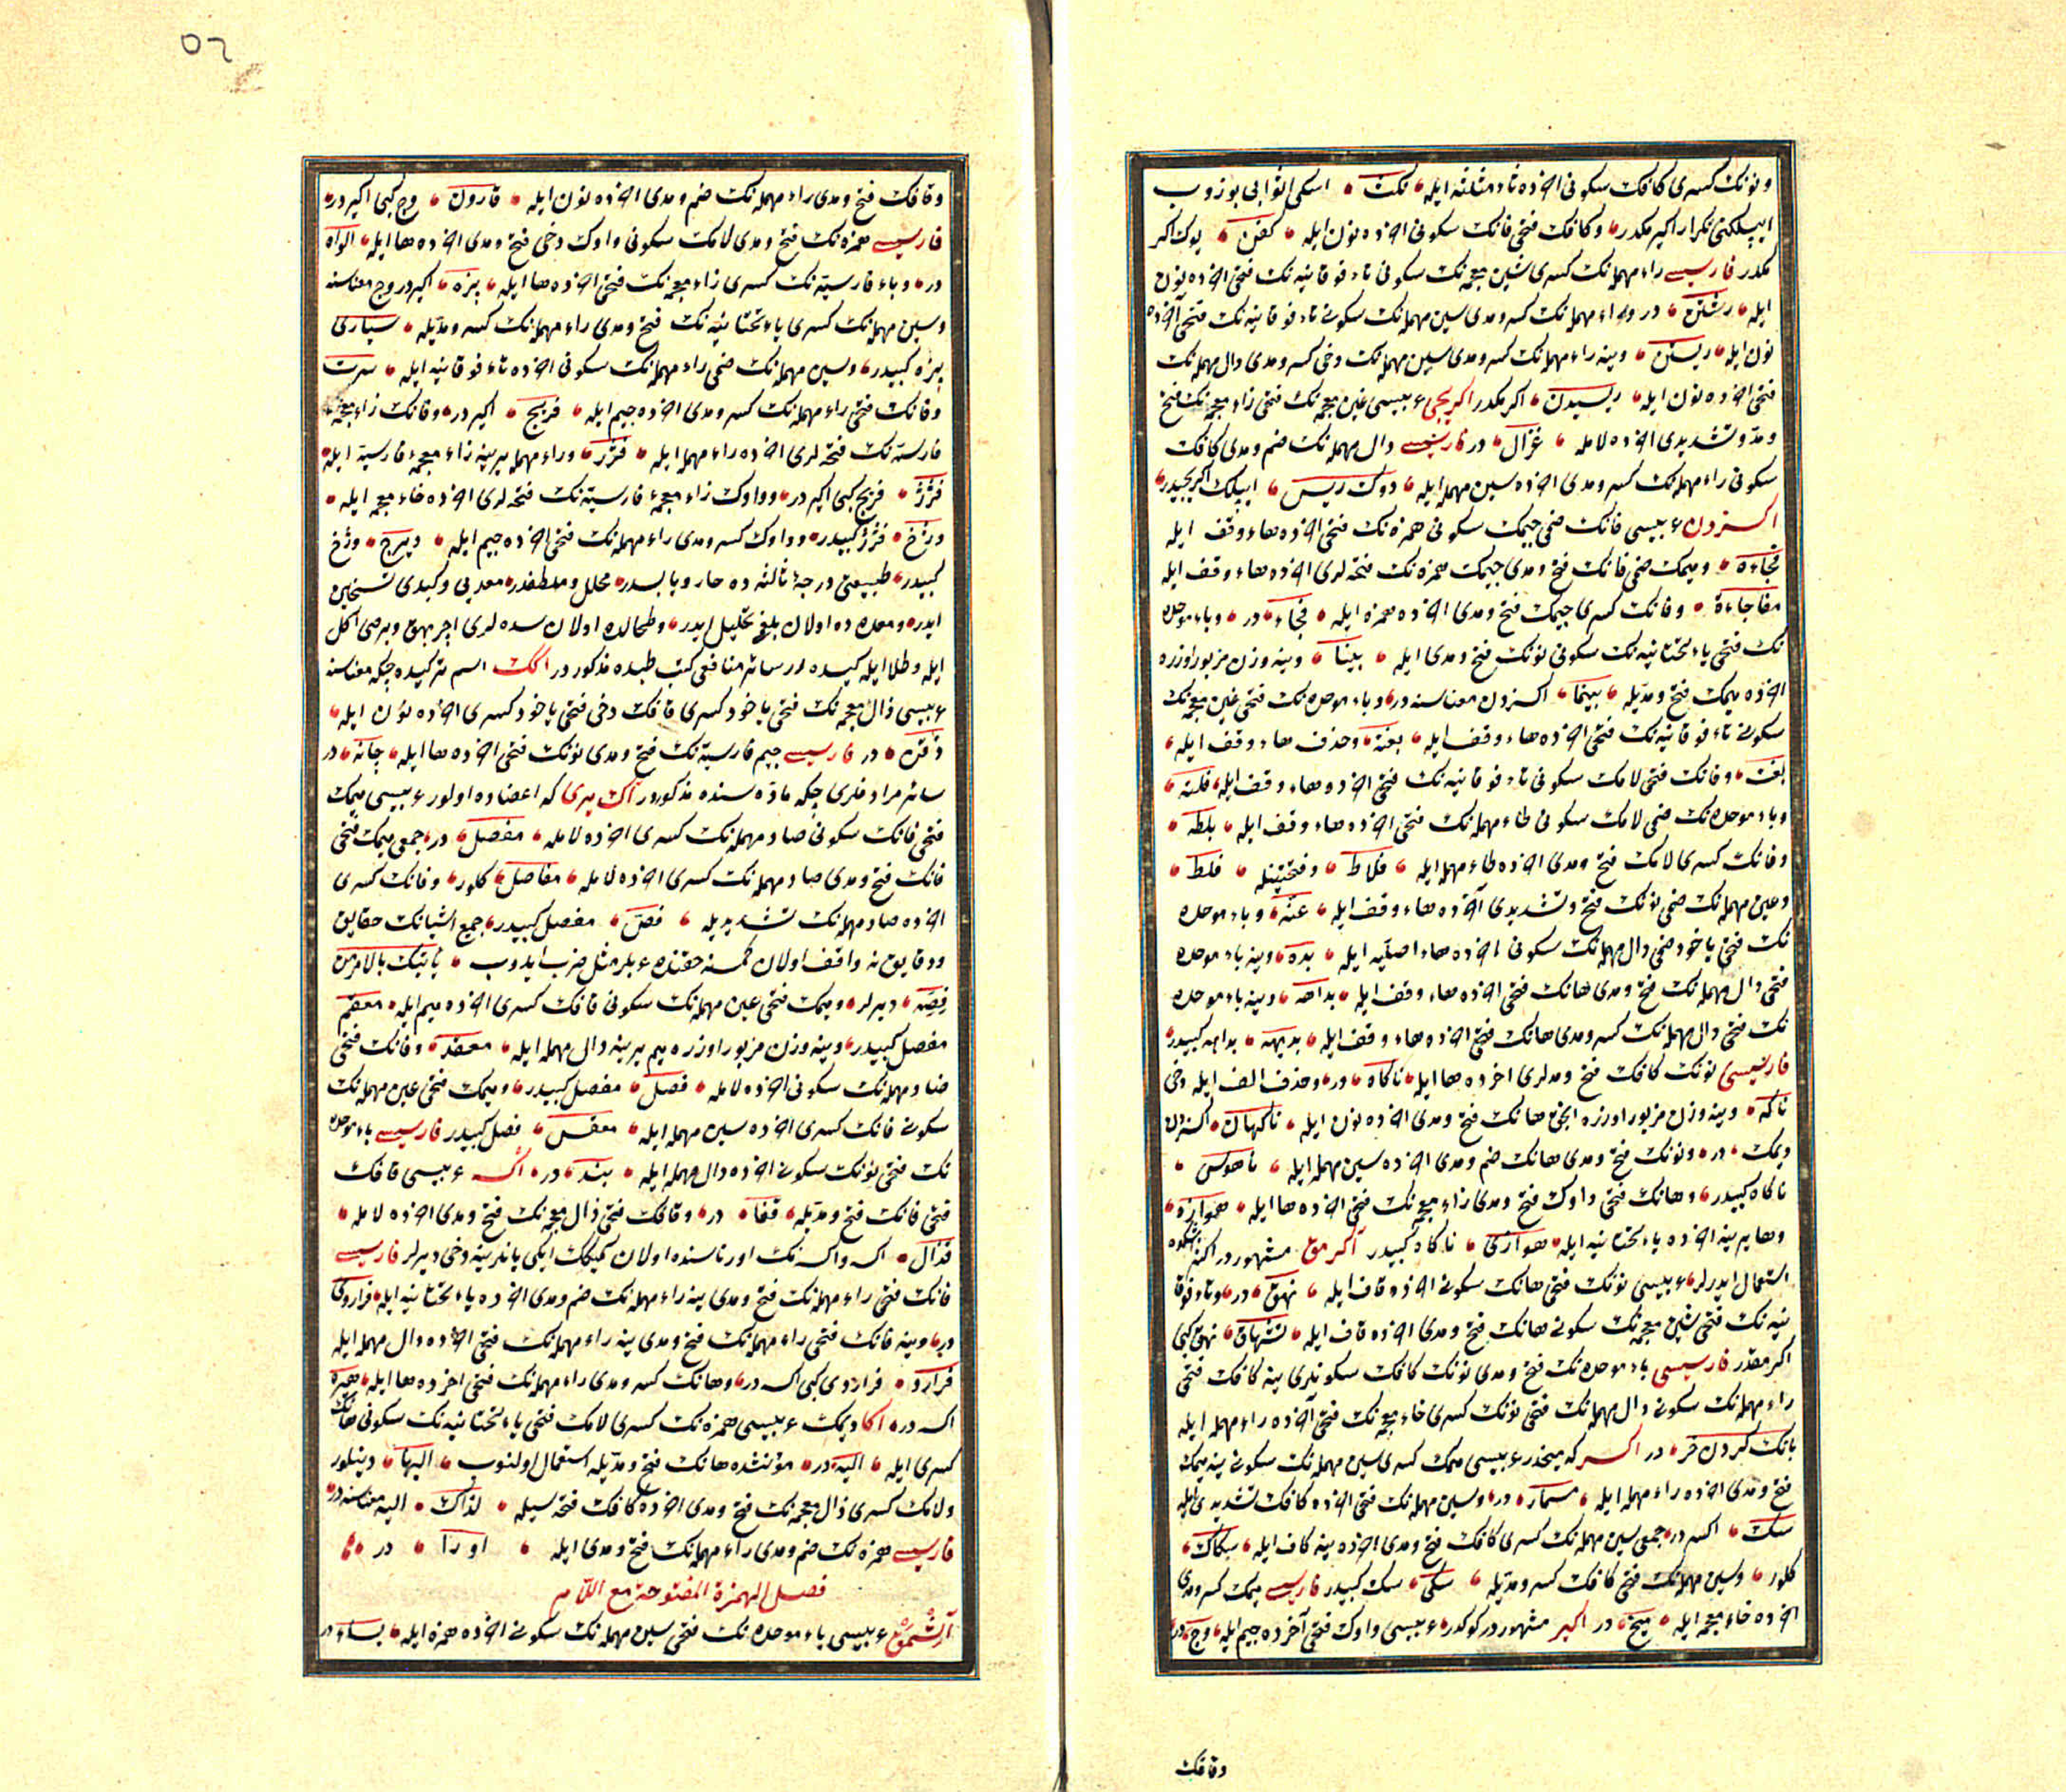 ونونك كسرى كافك سكونى اخرده ثاء مثلثه ايله نكث اسكى اثوابى بوزوب
ايپلكنى تكرار اكيرمكدر وكافك فتحى فانك سكونى اخرده نون ايله كفن يوك اكر
مكدر فارسيسى راء مهمله نك كسرى شين معجمه نك سكونى تاء فوقانيه نك فتحى اخرده نون
ايله رشتن در وراء مهمله نك كسر ومدى سين مهمله نك سكونى تاء فوقانيه نك فتحى آخرده
نون ايله ريستن وينه راء مهمله نك كسر ومدى سين مهمله نك دخى كسر ومدى دال مهمله نك
فتحى اخرده نون ايله ريسيدن اكرمكدر اكريجى عربيسى غين معجمه نك فتحى زاء معجمه نك فتح
ومد وتشديدى اخرده لامله غزال در فارسيسى دال مهمله نك ضم ومدى كافك
سكونى راء مهمله نك كسر ومدى اخرده سين مهمله ايله دوك ريس ايپلك اكريجيدر
اكسزدن عربيسى فانك ضمى جيمك سكونى همزه نك فتحى اخرده هاء وقف ايله
فجاءة وميمك ضمى فانك فتح ومدى جيمك همزه نك فتحه لرى اخرده هاء وقف ايله
مفاجاءة وفانك كسرى جيمك فتح ومدى اخرده همزه ايله فجاء در وباء موحده
نك فتحى ياء تحتانيه نك سكونى نونك فتح ومدى ايله بينا وينه وزن مزبور اوزره
اخرده ميمك فتح ومديله بينما اكسزدن معناسنه در وباء موحده نك فتحى غين معجمه نك
سكونى تاء فوقانيه نك فتحى اخرده هاء وقف ايله بغتة وحذف هاء وقف ايله
بغت وفانك فتحى لامك سكونى تاء فوقانيه نك فتحى اخرده هاء وقف ايله فلتة
وباء موحده نك ضمى لامك سكونى طاء مهمله نك فتحى اخرده هاء وقف ايله بلطه
وفانك كسرى لامك فتح ومدى اخرده طاء مهمله ايله فلاط وفتحتينله فلط
وعين مهمله نك ضمى نونك فتح وتشديدى آخرده هاء وقف ايله عنة وباء موحده
نك فتحى ياخود ضمى دال مهمله نك سكونى اخرده هاء اصليه ايله بده وينه باء موحده
فتحى دال مهمله نك فتح ومدى هانك فتحى اخرده هاء وقف ايله بداهة وينه باء موحده
نك فتحى دال مهمله نك كسر ومدى هانك فتحى اخرده هاء وقف ايله بديهة بداهه كبيدر
فارسيسى نونك كافك فتح ومدلرى اخرده ها ايله ناكاه در وحذف الف ايله دخى
ناكه وينه وزن مزبور اوزره انجق هانك فتح ومدى اخرده نون ايله ناكهان اكسزدن
ديمك در ونونك فتح ومدى هانك ضم ومدى اخرده سين مهمله ايله ناهوس
ناكاه كبيدر وهانك فتحى واوك فتح ومدى زاء معجمه نك فتحى اخرده ها ايله هوازه
وها يرينه اخرده ياء تحتانيه ايله هوازى ناكاه كبيدر اكرمق مشهوردر اكثر اشكده
استعمال ايدرلر عربيسى نونك فتحى هانك سكونى اخرده قاف ايله نهق در وتاء فوقا
نيه نك فتحى شين معجمه نك سكونى هانك فتح ومدى اخرده قاف ايله تشهاق نهق كبى
اكرمقدر فارسيسى باء موحده نك فتح ومدى نونك كافك سكونلرى ينه كافك فتحى
راء مهمله نك سكونى دال مهمله نك فتحى نونك كسرى خاء معجمه نك فتحى آخرده راء مهمله ايله
بانك كردن خر در اكسر كه ميخدر عربيسى ميمك كسرى سين مهمله نك سكونى ينه ميمك
فتح ومدى اخرده راء مهمله ايله مسمار در وسين مهمله نك فتحى اخرده كافك تشديدى ايله
سك اكسر در جمعى سين مهمله نك كسرى كافك فتح ومدى اخرده ينه كاف ايله سكاك
كلور وسين مهمله نك فتحى كافك كسر ومديله سكى سك كبيدر فارسيسى ميمك كسر ومدى
اخرده خاء معجمه ايله ميخ در اكير مشهور در كوكدر عربيسى واوك فتحى آخرده جيم ايله وج در
وقافك
٥٢
وقافك فتح ومدى راء مهمله نك ضم ومدى اخرده نون ايله قارون وج كبى اكير در
فارسيسى همزه نك فتح ومدى لامك سكونى واوك دخى فتح ومدى اخرده ها ايله الواه
در وباء فارسيه نك كسرى زاء معجمه نك فتحى اخرده ها ايله پزه اكير در وج معناسنه
وسين مهمله نك كسرى ياء تحتانيه نك فتح ومدى راء مهمله نك كسر ومديله سيارى
پزه كبيدر وسين مهمله نك ضمى راء مهمله نك سكونى اخرده تاء فوقانيه ايله سرت
وفانك فتحى راء مهمله نك كسر ومدى اخرده جيم ايله فريج اكير در وفانك زاء معجمه
فارسيه نك فتحه لرى اخرده راء مهمله ايله فژر وراء مهمله يرينه زاء معجمه فارسيه ايله
فژژ فريج كبى اكير در وواوك زاء معجمه فارسيه نك فتحه لرى اخرده خاء معجمه ايله
وژخ فژژ كبيدر وواوك كسر ومدى راء مهمله نك فتحى اخرده جيم ايله ويرج وژخ
كبيدر طبيعتى درجه ثالثه ده حار ويابسدر محلل وملطفدر معده يى وكبدى تسخين
ايدر ومعده ده اولان بلغمى تحليل ايدر وطحالده اولان سده لرى اچر بهق وبرصى اكل
ايله وطلا ايله كيده رر سائر منافعى كتب طبده مذكوردر اكك اسم تركيده چكه معناسنه
عربيسى ذال معجمه نك فتحى ياخود كسرى قافك دخى فتحى ياخود كسرى اخرده نون ايله
ذقن در فارسيسى جيم فارسيه نك فتح ومدى نونك فتحى اخرده ها ايله چانه در
سائر مرادفلرى چكه ماده سنده مذكوردر اك يرى كه اعضاده اولور عربيسى ميمك
فتحى فانك سكونى صاد مهمله نك كسرى اخرده لامله مفصل در جمعى ميمك فتحى
فانك فتح ومدى صاد مهمله نك كسرى اخرده لامله مفاصل كلور وفانك كسرى
اخرده صاد مهمله نك تشديديله فص مفصل كبيدر جميع اشيانك حقايق
ودقايقنه واقف اولان كمسنه حقنده عربلر مثل ضرب ايدوب ياتيك بالامر من
فصه ديرلر وميمك فتحى عين مهمله نك سكونى قافك كسرى اخرده ميم ايله معقم
مفصل كبيدر وينه وزن مزبور اوزره ميم يرينه دال مهمله ايله معقد وفانك فتحى
صاد مهمله نك سكونى اخرده لامله فصل مفصل كبيدر وميمك فتحى عين مهمله نك
سكونى قانك كسرى اخرده سين مهمله ايله معقس فصل كبيدر فارسيسى باء موحده
نك فتحى نونك سكونى اخرده دال مهمله ايله بند در اكسه عربيسى قافك
فتحى فانك فتح ومديله قفا در وقافك فتحى ذال معجمه نك فتح ومدى اخرده لامله
قذال اكسه واكسه نك اورتاسنده اولان كميكك ايكى يانلرينه دخى ديرلر فارسيسى
فانك فتحى راء مهمله نك فتح ومدى ينه راء مهمله نك ضم ومدى اخرده ياء تحتانيه ايله فراروى
در وينه فانك فتحى راء مهمله نك فتح ومدى ينه راء مهمله نك فتحى اخرده دال مهمله ايله
فرارد فراروى كبى اكسه در وهانك كسر ومدى راء مهمله نك فتحى اخرده ها ايله هيره
اكسه در اكا ديمك عربيسى همزه نك كسرى لامك فتحى ياء تحتانيه نك سكونى هانك
كسرى ايله اليه در مؤنثده هانك فتح ومديله استعمال اولنوب اليها دينلور
ولامك كسرى ذال معجمه نك فتح ومدى اخرده كافك فتحه سيله لذاك اليه معناسنه در
فارسيسى همزه نك ضم ومدى راء مهمله نك فتح ومدى ايله اورا در
فصل الهمزة المفتوحة مع اللام
آلشمق عربيسى باء موحده نك فتحى سين مهمله نك سكونى اخرده همزه ايله بساء در